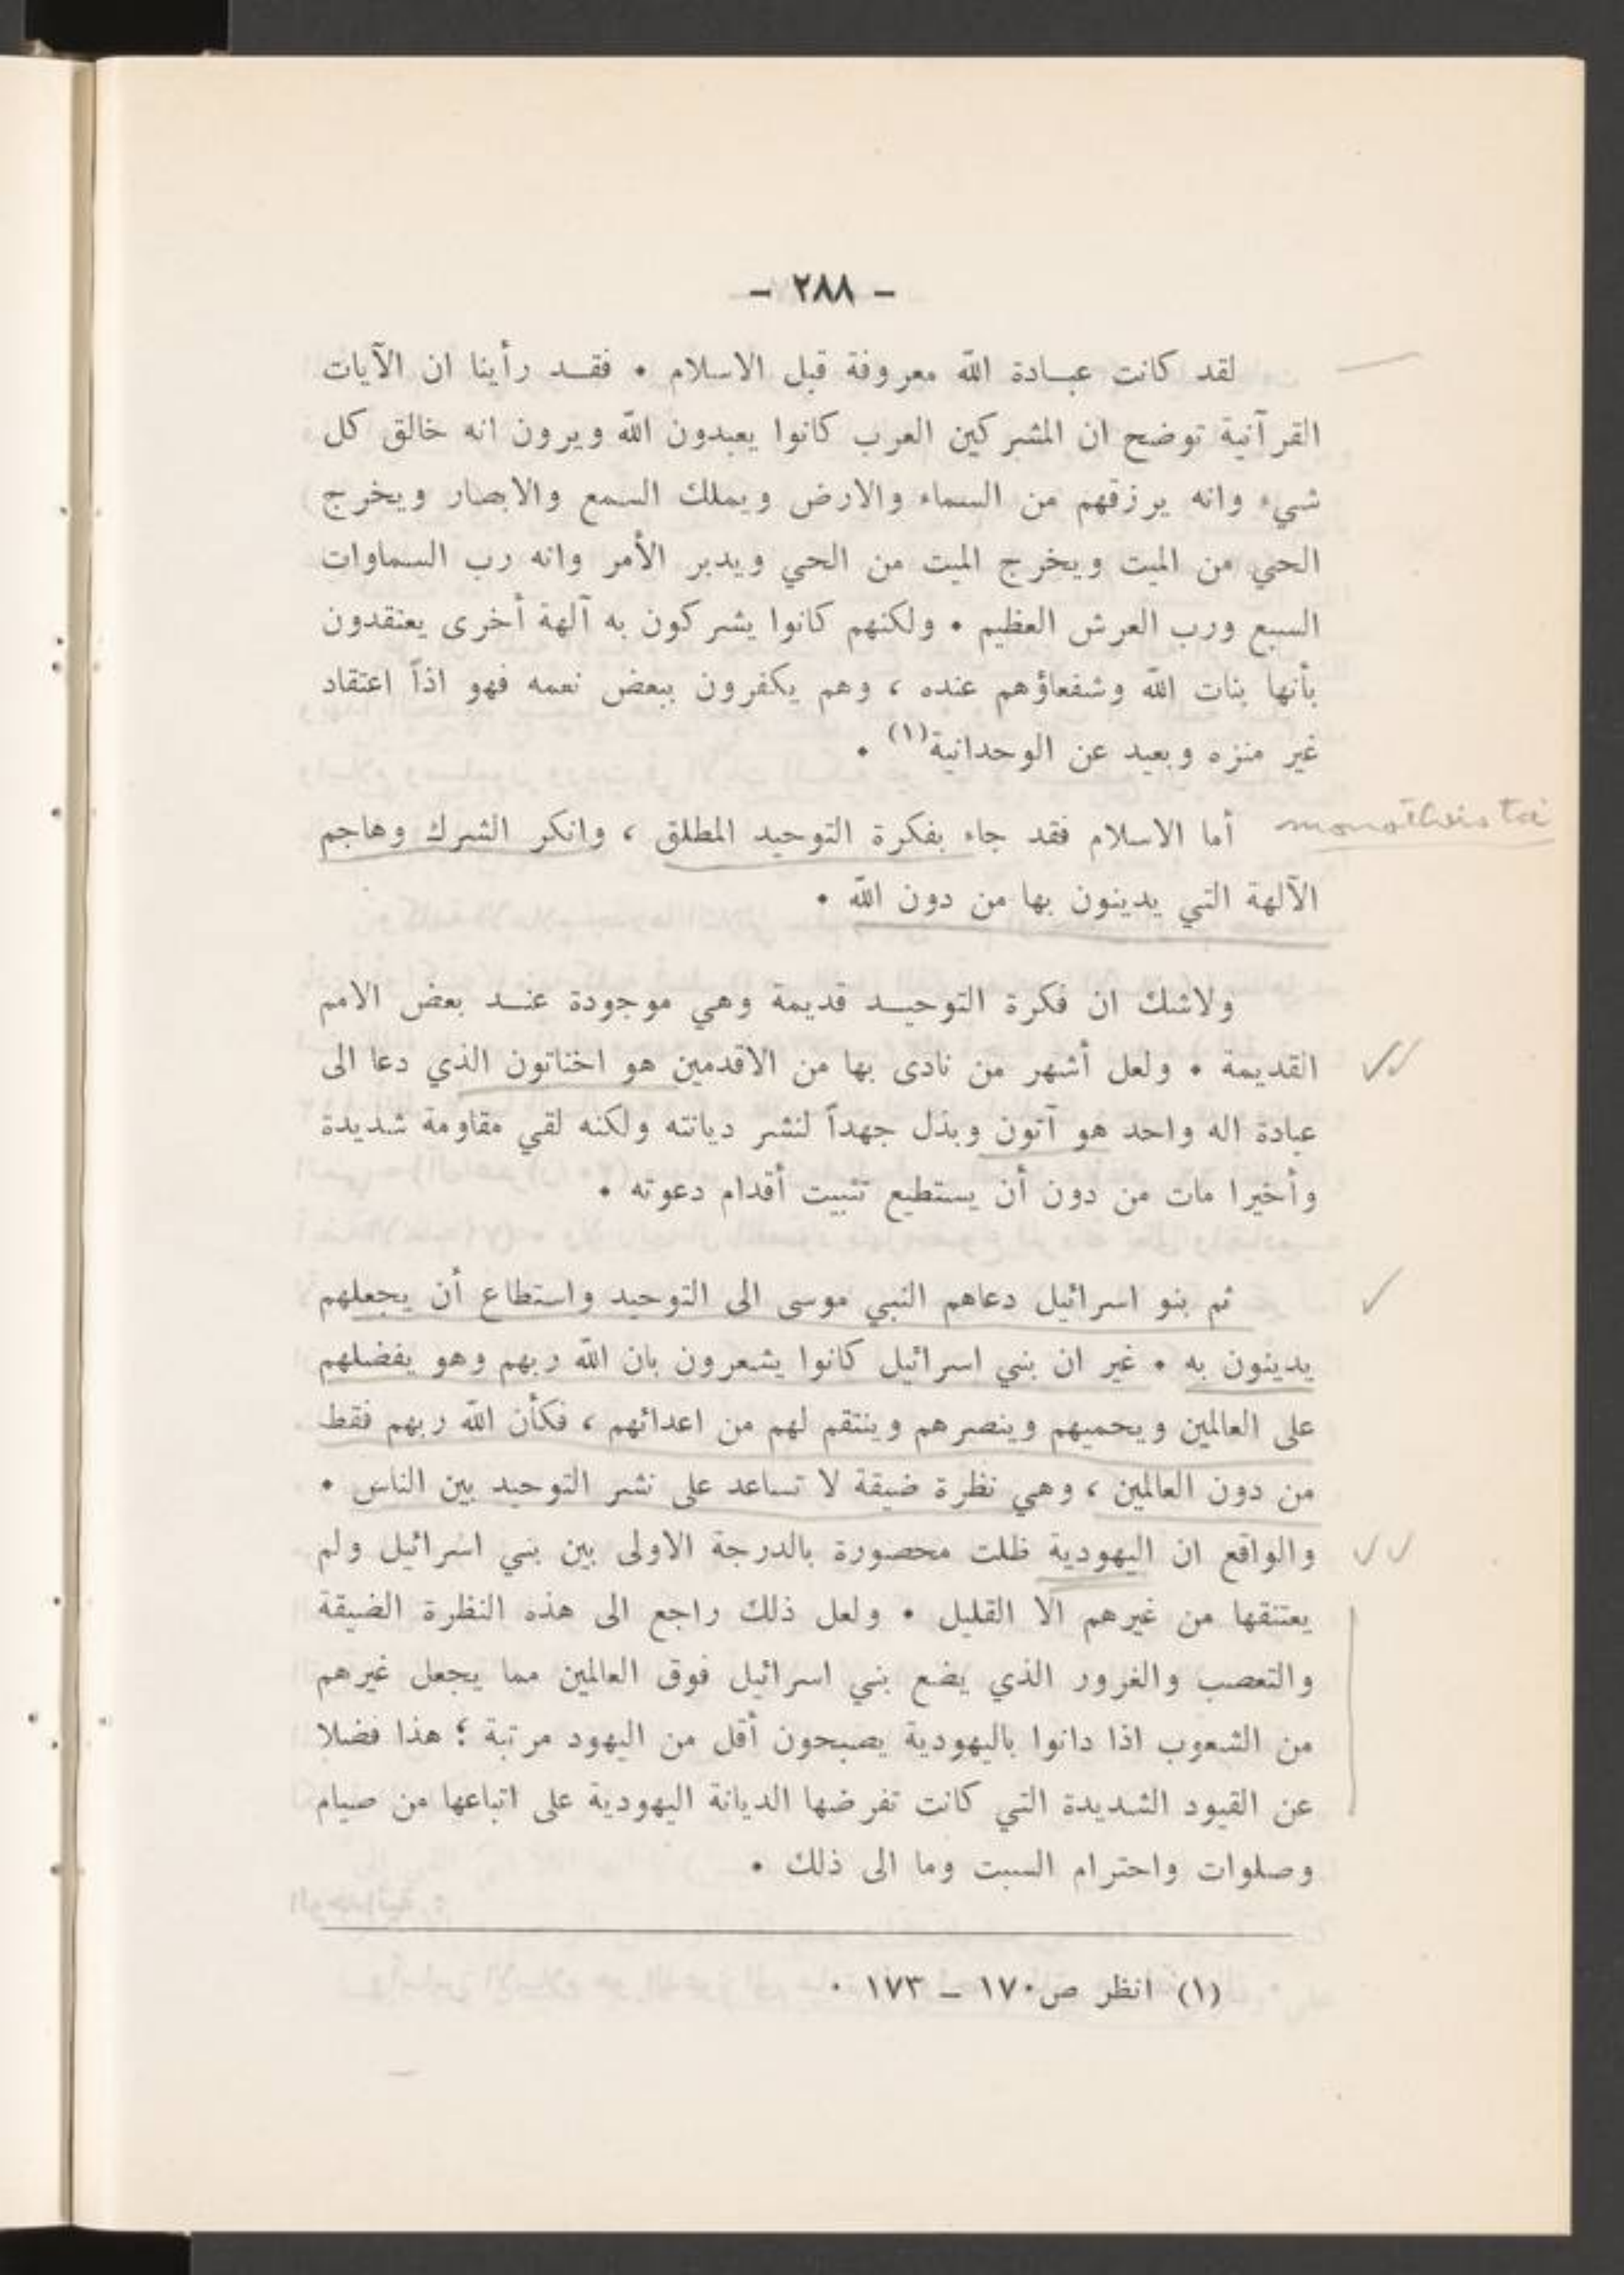 - ٢٨٨ -
لقد كانت عبادة الله معروفة قبل الاسلام • فقد رأينا ان الآيات
القرآنية توضح ان المشركين العرب كانوا يعبدون الله ويرون انه خالق كل
شيء وانه يرزقهم من السماء والارض ويملك السمع والابصار ويخرج
الحي من الميت ويخرج الميت من الحي ويدبر الأمر وانه رب السماوات
السبع ورب العرش العظيم • ولكنهم كانوا يشركون به آلهة أخرى يعتقدون
بأنها بنات الله وشفعاؤهم عنده ، وهم يكفرون ببعض نعمه فهو اذاً اعتقاد
غير منزه وبعيد عن الوحدانية(١) •
أما الاسلام فقد جاء بفكرة التوحيد المطلق ، وانكر الشرك وهاجم
الآلهة التي يدينون بها من دون الله •
ولاشك ان فكرة التوحيد قديمة وهي موجودة عند بعض الامم
القديمة • ولعل أشهر من نادى بها من الاقدمين هو اخناتون الذي دعا الى
عبادة اله واحد هو آتون وبذل جهداً لنشر ديانته ولكنه لقي مقاومة شديدة
وأخيرا مات من دون أن يستطيع تثبيت أقدام دعوته •
ثم بنو اسرائيل دعاهم النبي موسى الى التوحيد واستطاع أن يجعلهم
يدينون به • غير ان بني اسرائيل كانوا يشعرون بان الله ربهم وهو يفضلهم
على العالمين ويحميهم وينصرهم وينتقم لهم من اعدائهم ، فكأن الله ربهم فقط
من دون العالمين ، وهي نظرة ضيقة لا تساعد على نشر التوحيد بين الناس •
والواقع ان اليهودية ظلت محصورة بالدرجة الاولى بين بني اسرائيل ولم
يعتنقها من غيرهم الا القليل • ولعل ذلك راجع الى هذه النظرة الضيقة
والتعصب والغرور الذي يضع بني اسرائيل فوق العالمين مما يجعل غيرهم
من الشعوب اذا دانوا باليهودية يصبحون أقل من اليهود مرتبة ؛ هذا فضلا
عن القيود الشديدة التي كانت تفرضها الديانة اليهودية على اتباعها من صيام
وصلوات واحترام السبت وما الى ذلك •
(١) انظر ص١٧٠ - ١٧٣ •